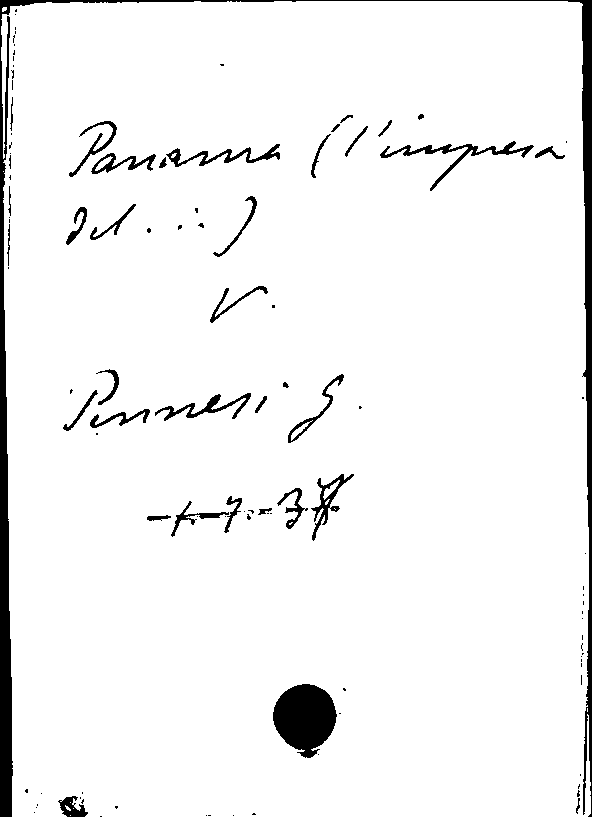 Panama (l'impresa
del...)
V.
Pennesi G.